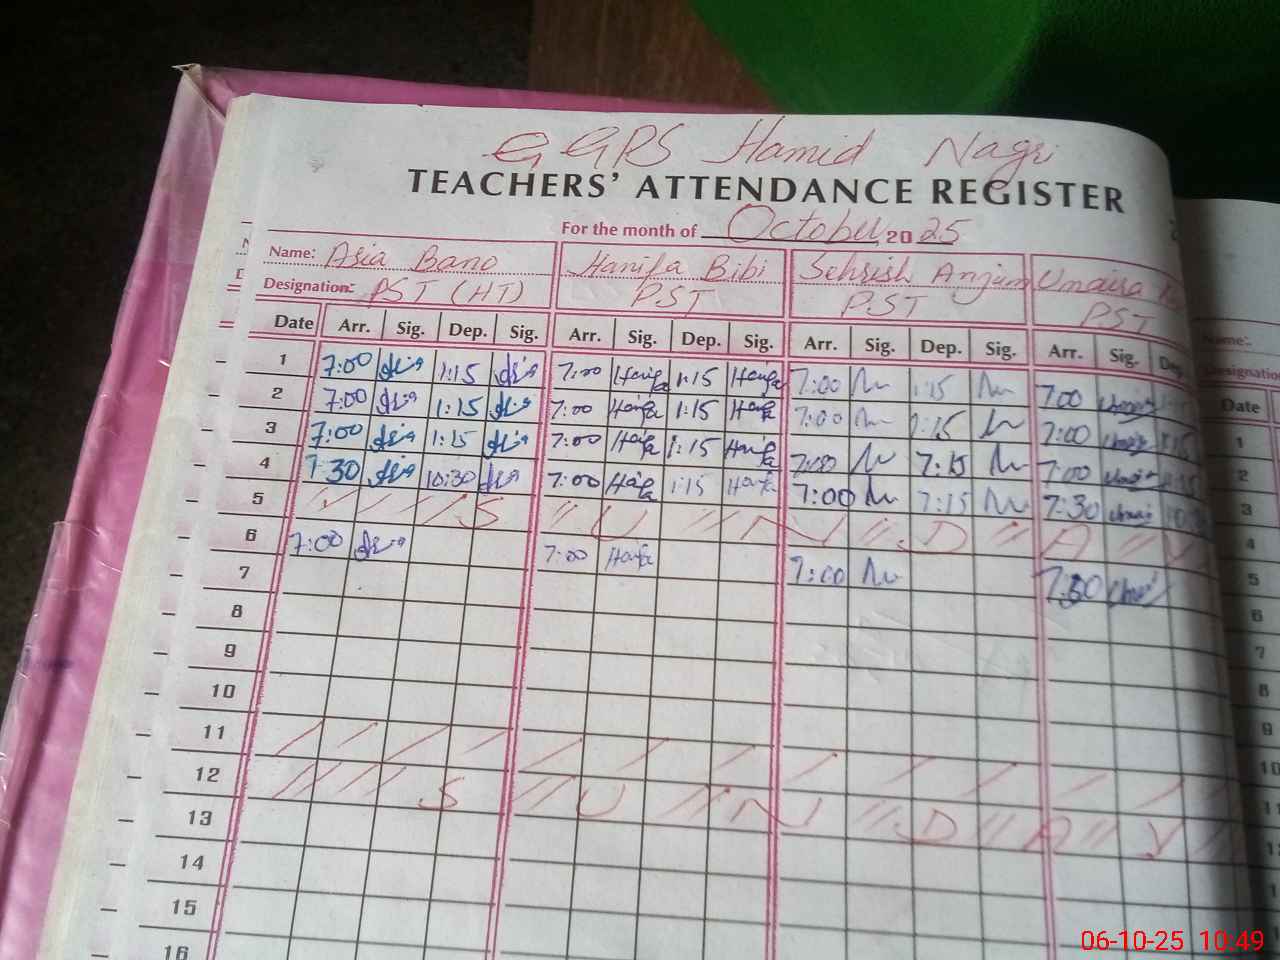 GGPS Hamid Nagri
TEACHERS' ATTENDANCE REGISTER
For the month of October, 2025
Name: Asia Bano Hanifa Bibi Sehrish Anjum Umaira
Designation: PST (HT) PST PST PST
Date Arr. Sig. Dep. Sig. Arr. Sig. Dep. Sig. Arr. Sig. Dep. Sig. Arr. Sig.
1 7:00 1:15 7:00 Hanifa 1:15 Hanifa 7:00 1:15 7:00
2 7:00 1:15 7:00 Hanifa 1:15 Hanifa 7:00 1:15 7:00
3 7:00 1:15 7:00 Hanifa 1:15 Hanifa 7:00 7:15 7:00
4 7:30 10:30 7:00 Hanifa 1:15 Hanifa 7:00 7:15 7:30
5 S U N D A Y
6 7:00 7:00 Hanifa 7:00
7
8
9
10
11
12 S U N D A Y
13
14
15
16
Name:
Designation
Date
1
2
3
4
5
6
7
8
9
10
11
06-10-25 10:49